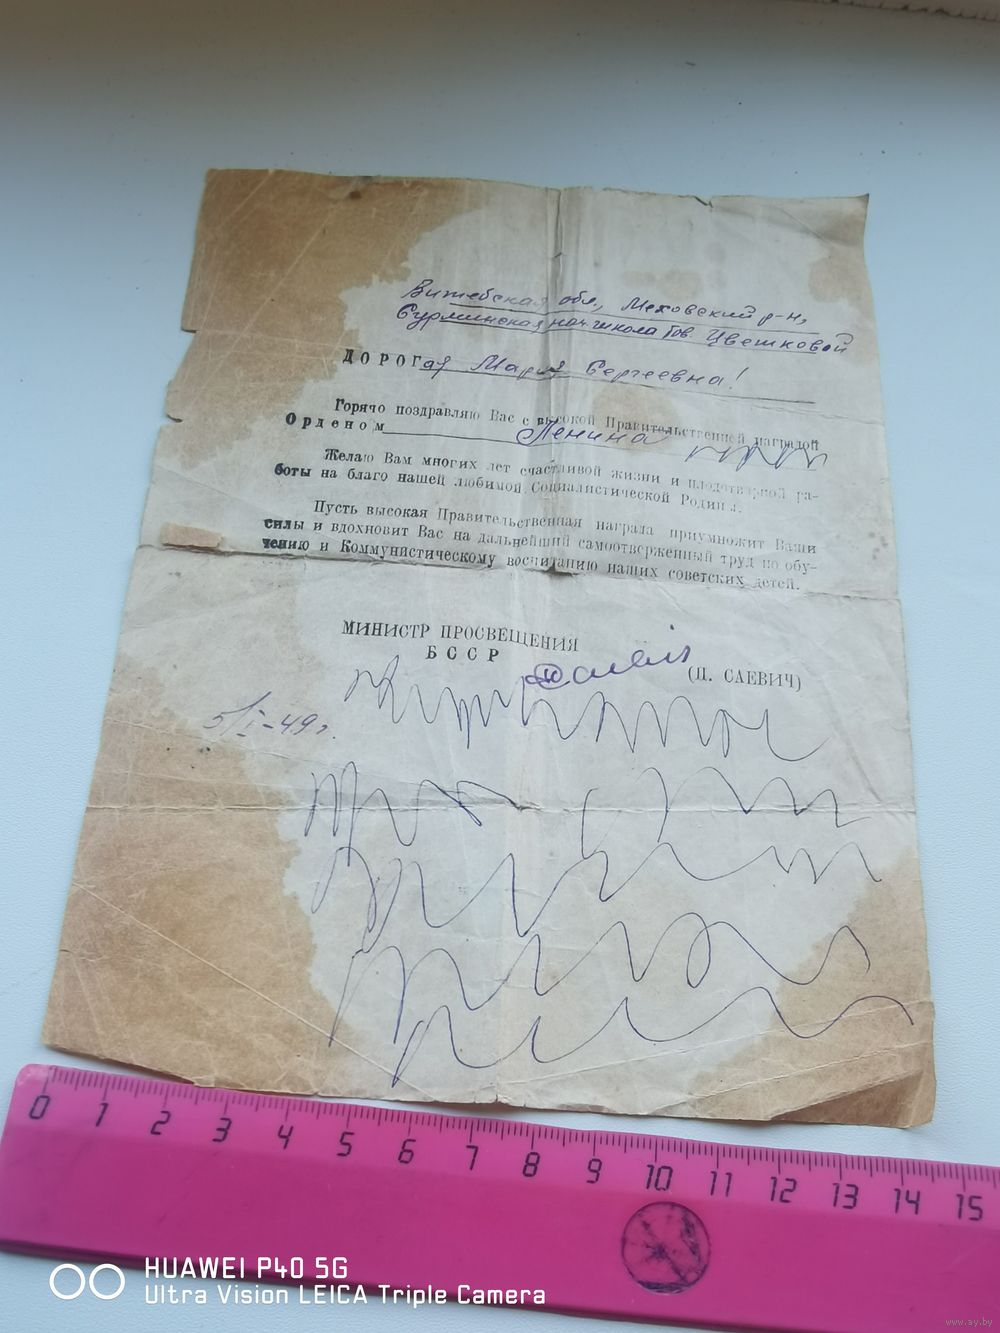 Витебская обл., Меховский р-н,
Сурминская нач. школа тов. Цветковой
ДОРОГая Мария Сергеевна!
Горячо поздравляю Вас с высокой Правительственной наградой
Орденом Ленина
Желаю Вам многих лет счастливой жизни и плодотворной ра-
боты на благо нашей любимой Социалистической Родины.
Пусть высокая Правительственная награда приумножит Ваши
силы и вдохновит Вас на дальнейший самоотверженный труд по обу-
чению и Коммунистическому воспитанию наших советских детей.
МИНИСТР ПРОСВЕЩЕНИЯ
БССР
(П. САЕВИЧ)
5/I-49 г.
0 1 2 3 4 5 6 7 8 9 10 11 12 13 14 15
HUAWEI P40 5G
Ultra Vision LEICA Triple Camera
www.ay.by